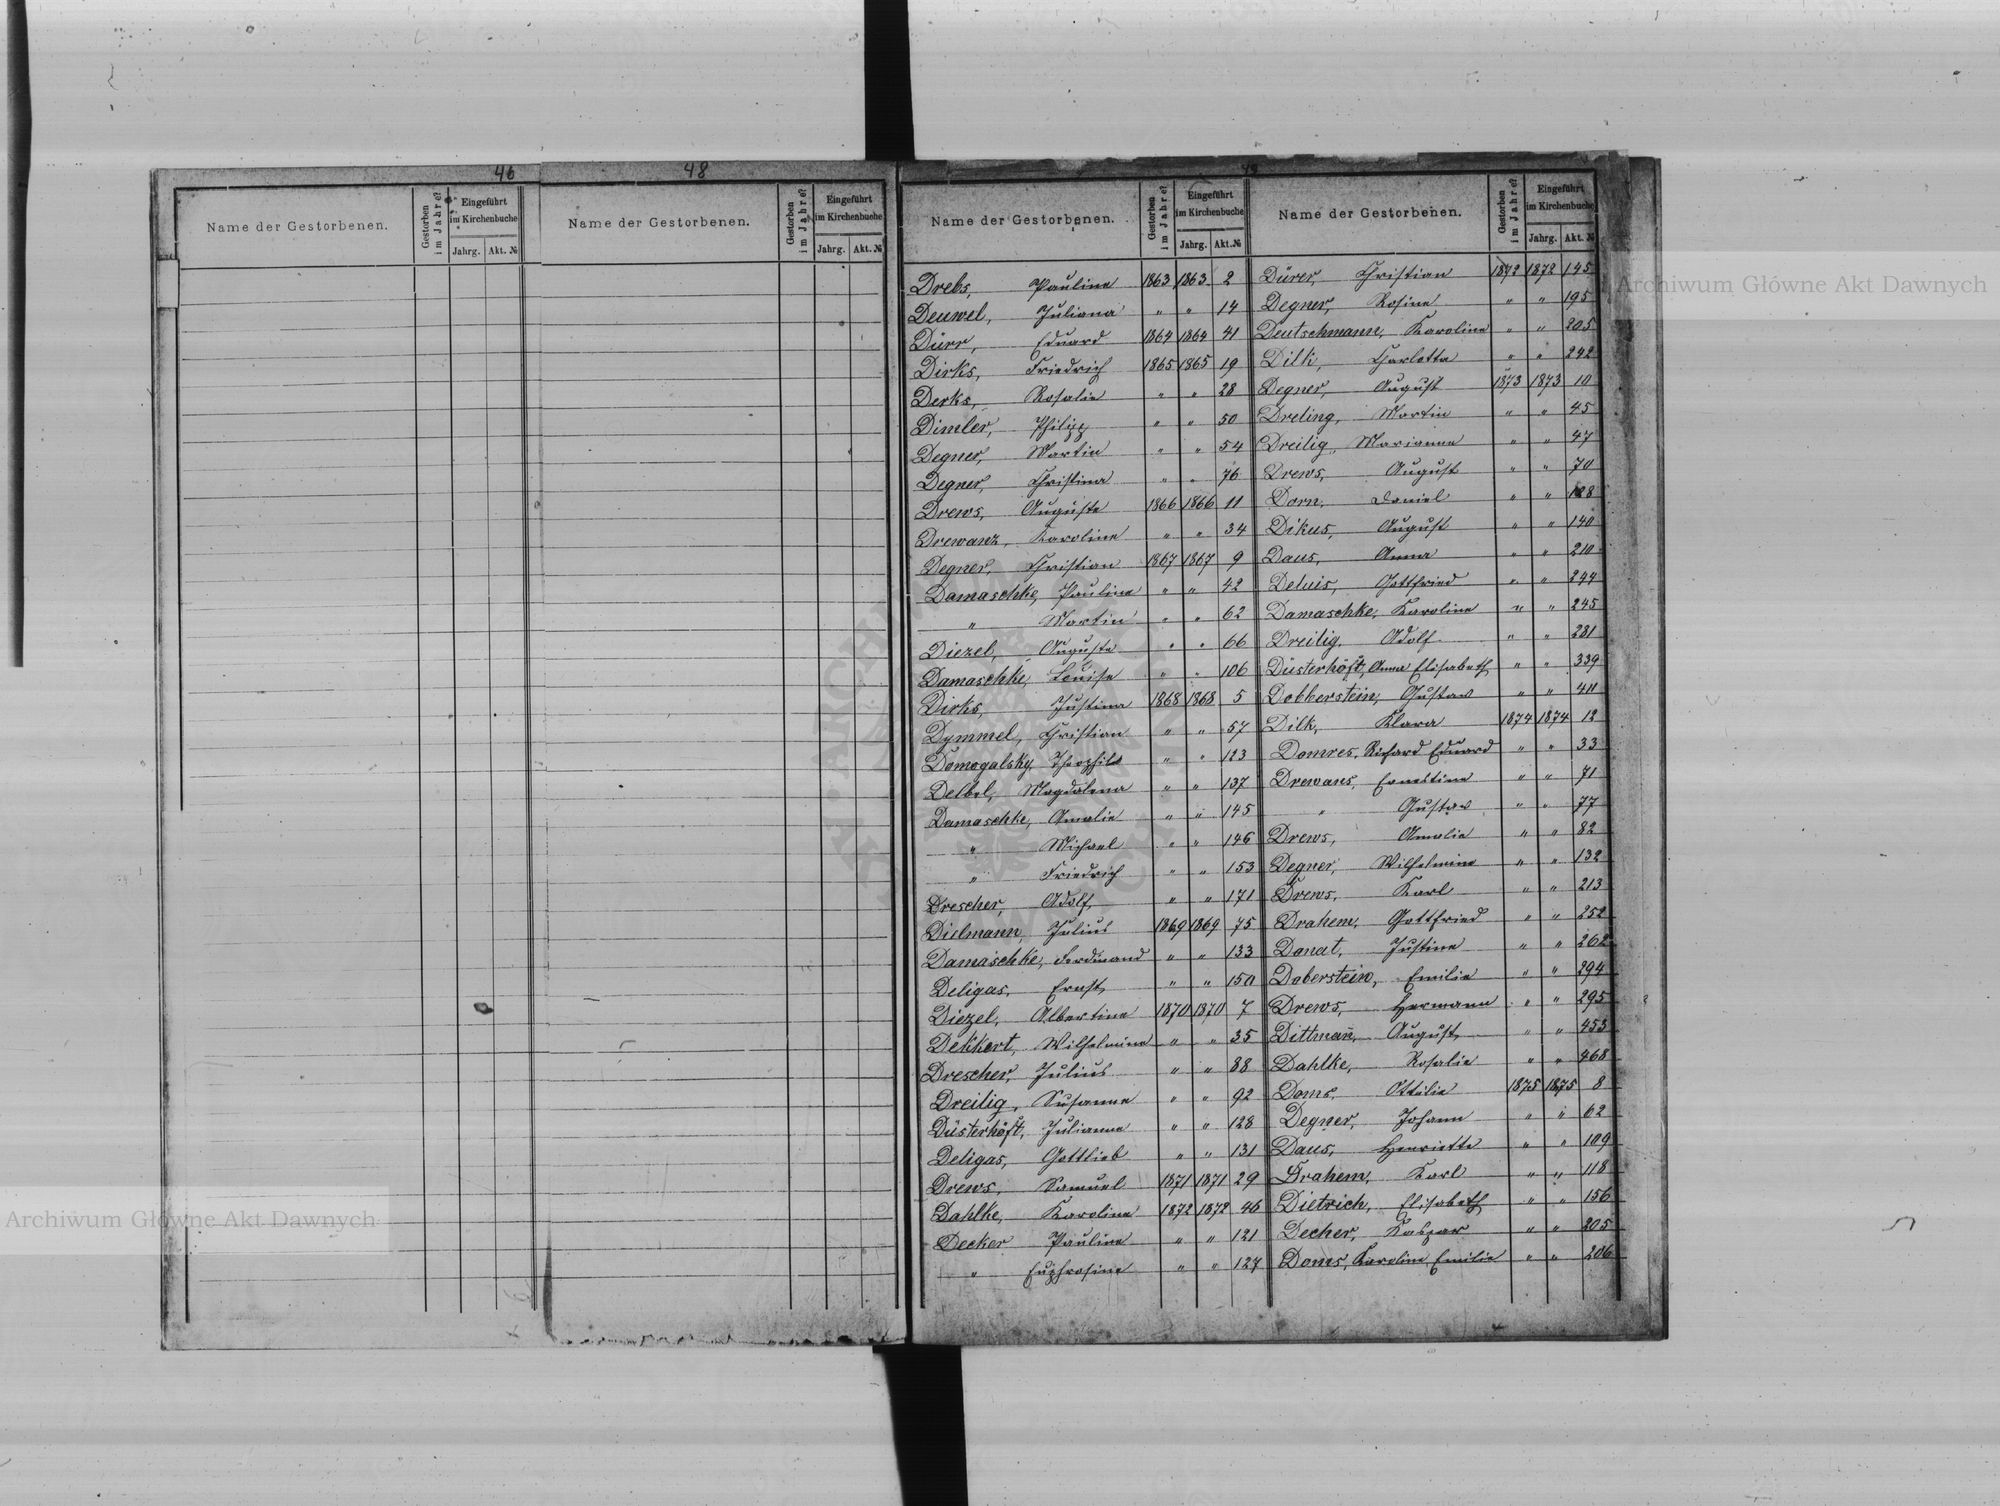 46
48
49
Name der Gestorbenen. Gestorben im Jahre? Eingeführt im Kirchenbuche Jahrg. Akt. №
Name der Gestorbenen. Gestorben im Jahre? Eingeführt im Kirchenbuche Jahrg. Akt. №
Name der Gestorbenen. Gestorben im Jahre? Eingeführt im Kirchenbuche Jahrg. Akt. №
Drebs, Pauline 1863 1863 2
Deuwel, Juliana " " 14
Dürr, Eduard 1864 1864 41
Dirks, Friedrich 1865 1865 19
Derks, Rosalie " " 28
Dimler, Philipp " " 50
Degner, Martin " " 54
Degner, Christina " " 76
Drews, Auguste 1866 1866 11
Drewanz, Karoline " " 34
Degner, Christian 1867 1867 9
Damaschke, Pauline " " 42
" Martin " " 62
Diezel, Auguste " " 66
Damaschke, Louise " " 106
Dirks, Justina 1868 1868 5
Dymmel, Christian " " 57
Domogalsky, Theophil " " 123
Delbel, Magdalena " " 137
Damaschke, Amalie " " 145
" Michael " " 146
" Friedrich " " 153
Drescher, Adolf " " 171
Dielmann, Julius 1869 1869 75
Damaschke, Ferdinand " " 133
Deligas, Ernst " " 150
Diezel, Albertine 1870 1870 7
Dekkert, Wilhelmine " " 35
Drescher, Julius " " 88
Dreilig, Susanne " " 92
Düsterhöft, Julianna " " 128
Deligas, Gottlieb " " 131
Drews, Samuel 1871 1871 29
Dahlke, Karoline 1872 1872 46
Decker Pauline " " 121
" Euphrosine " " 127
Name der Gestorbenen. Gestorben im Jahre? Eingeführt im Kirchenbuche Jahrg. Akt. №
Dürr, Christian 1872 1872 145
Degner, Rosine " " 195
Deutschmann, Karoline " " 205
Dilk, Charlotta " " 242
Degner, August 1873 1873 10
Dreling, Martin " " 45
Dreilig, Marianna " " 47
Drews, August " " 70
Dorn, Daniel " " 128
Dikus, August " " 140
Daus, Anna " " 210
Deluis, Gottfried " " 244
Damaschke, Karoline " " 245
Dreilig, Adolf " " 281
Düsterhöft, Anna Elisabeth " " 339
Dobberstein, Gustav " " 411
Dilk, Klara 1874 1874 12
Domres, Richard Eduard " " 33
Drewans, Ernestine " " 71
" Gustav " " 77
Drews, Amalie " " 82
Degner, Wilhelmine " " 132
Drews, Karl " " 213
Drahem, Gottfried " " 252
Donat, Justine " " 262
Doberstein, Emilie " " 294
Drews, Hermann " " 295
Dittmañ, August " " 453
Dahlke, Rosalie " " 468
Doms, Ottilie 1875 1875 8
Degner, Johann " " 62
Daus, Henriette " " 109
Drahem, Karl " " 118
Dietrich, Elisabeth " " 156
Decher, Kaspar " " 205
Doms, Karoline Emilie " " 206
Archiwum Główne Akt Dawnych
Archiwum Główne Akt Dawnych